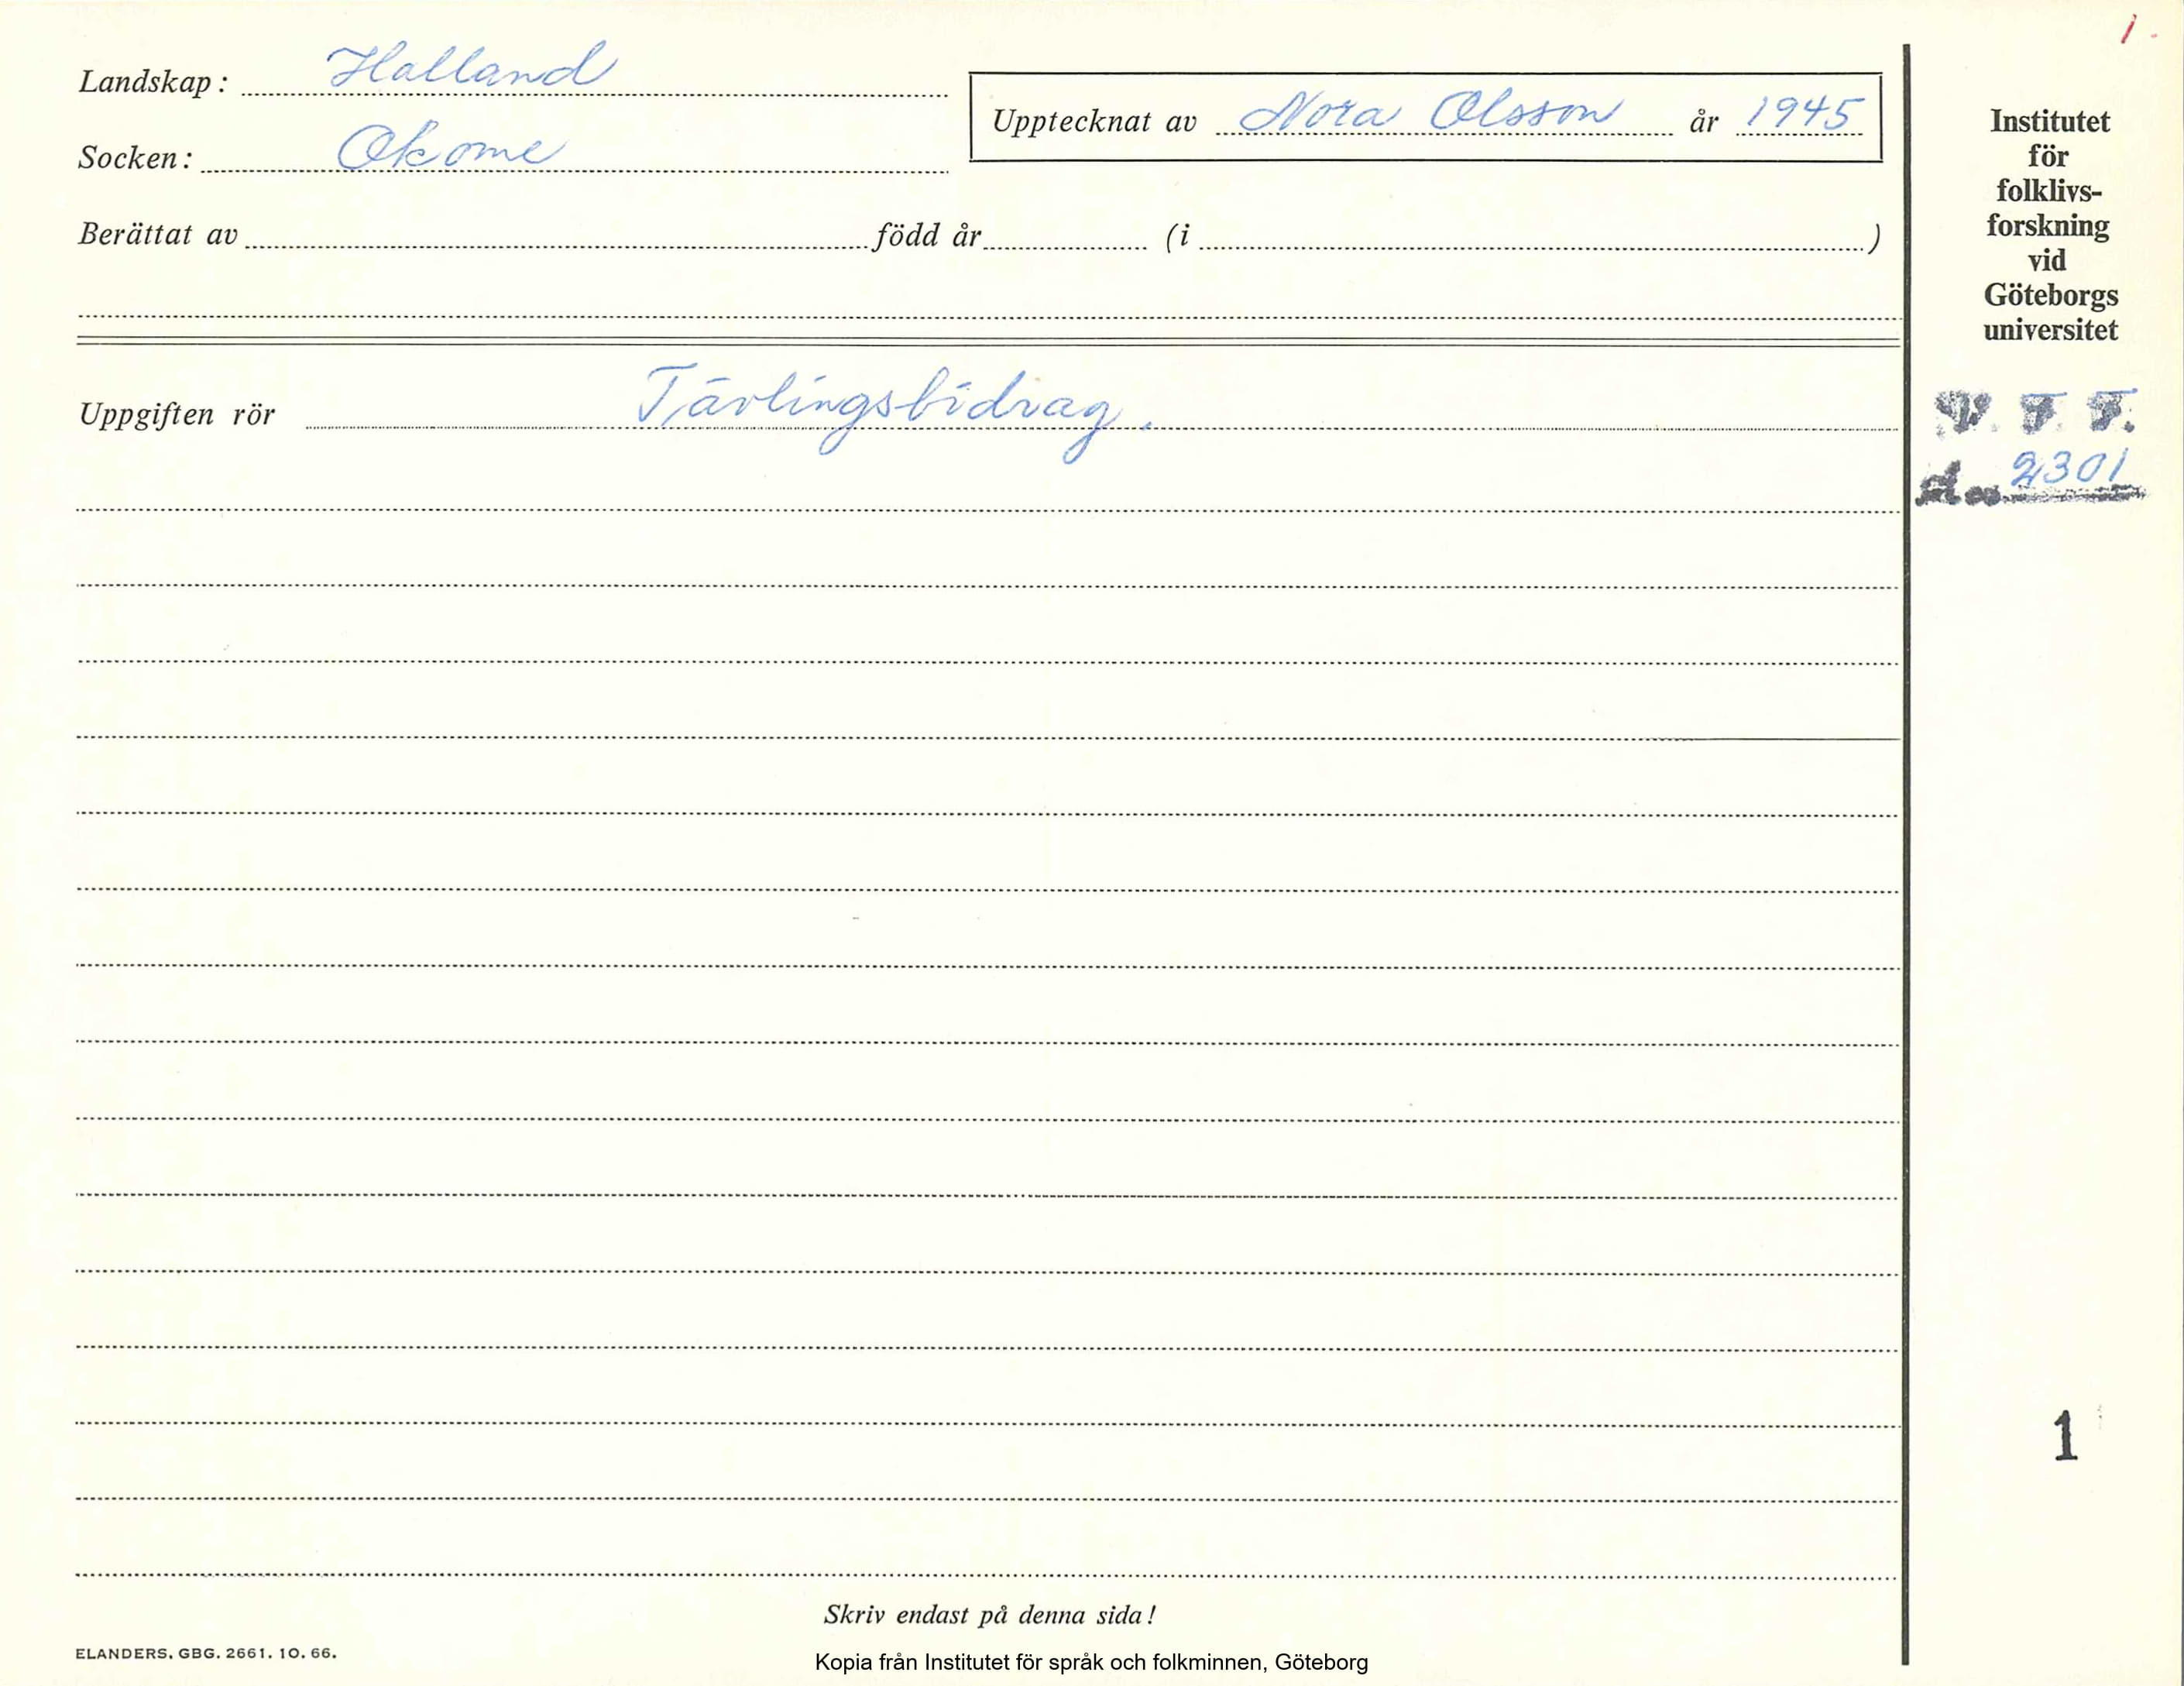 1.
Landskap: Halland
Socken: Okome
Upptecknat av Nora Olsson år 1945
Berättat av född år (i )
Uppgiften rör Tävlingsbidrag.
Institutet
för
folklivs-
forskning
vid
Göteborgs
universitet
V. F. F.
2301
1
Skriv endast på denna sida!
ELANDERS. GBG. 2661. 10. 66.
Kopia från Institutet för språk och folkminnen, Göteborg